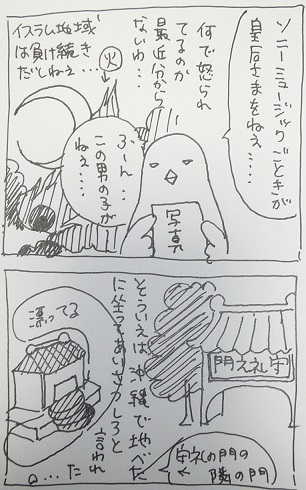 ソニーミュージックごときが
皇后さまをねぇ....
何で怒られ
てるのか
最近分から
ないわ....
ふーん...
この男の子が
ねぇ...
写真
火
イスラム地域
は負け続き
だとねぇ...
守礼之門
(守礼の門の
隣の門)
そういえば沖縄で地べた
に坐ってあいさつしろと
言われ
...た
漂ってる